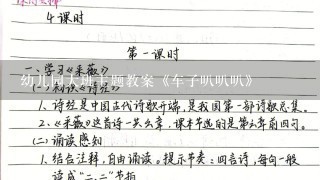 4课时
第一课时
一、学习《采薇》
幼儿园大班主题教案《车子叭叭叭》
(一)初读《诗经》
1、诗经是中国古代诗歌开端,是我国第一部诗歌总集。
2、《采薇》这首诗一共六章,课本节选的是第六章前四句。
(二)诵读感知
1、结合注释,自由诵读。提示节奏:四言诗,每句一般
读成“二、二”节拍